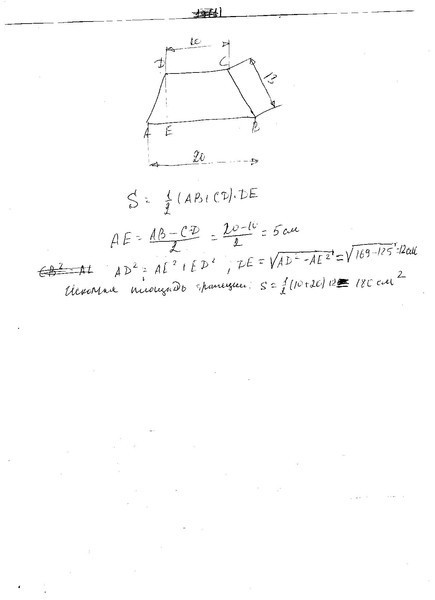 10
D C
13
A E B
20
S = 1/2 (AB+CD)·DE
AE = (AB − CD)/2 = (20−10)/2 = 5 см
AD² = AE² + ED², DE = √(AD² − AE²) = √(169−125) = 12 см
Искомая площадь трапеции: S = 1/2 (10+20) 12 = 180 см²